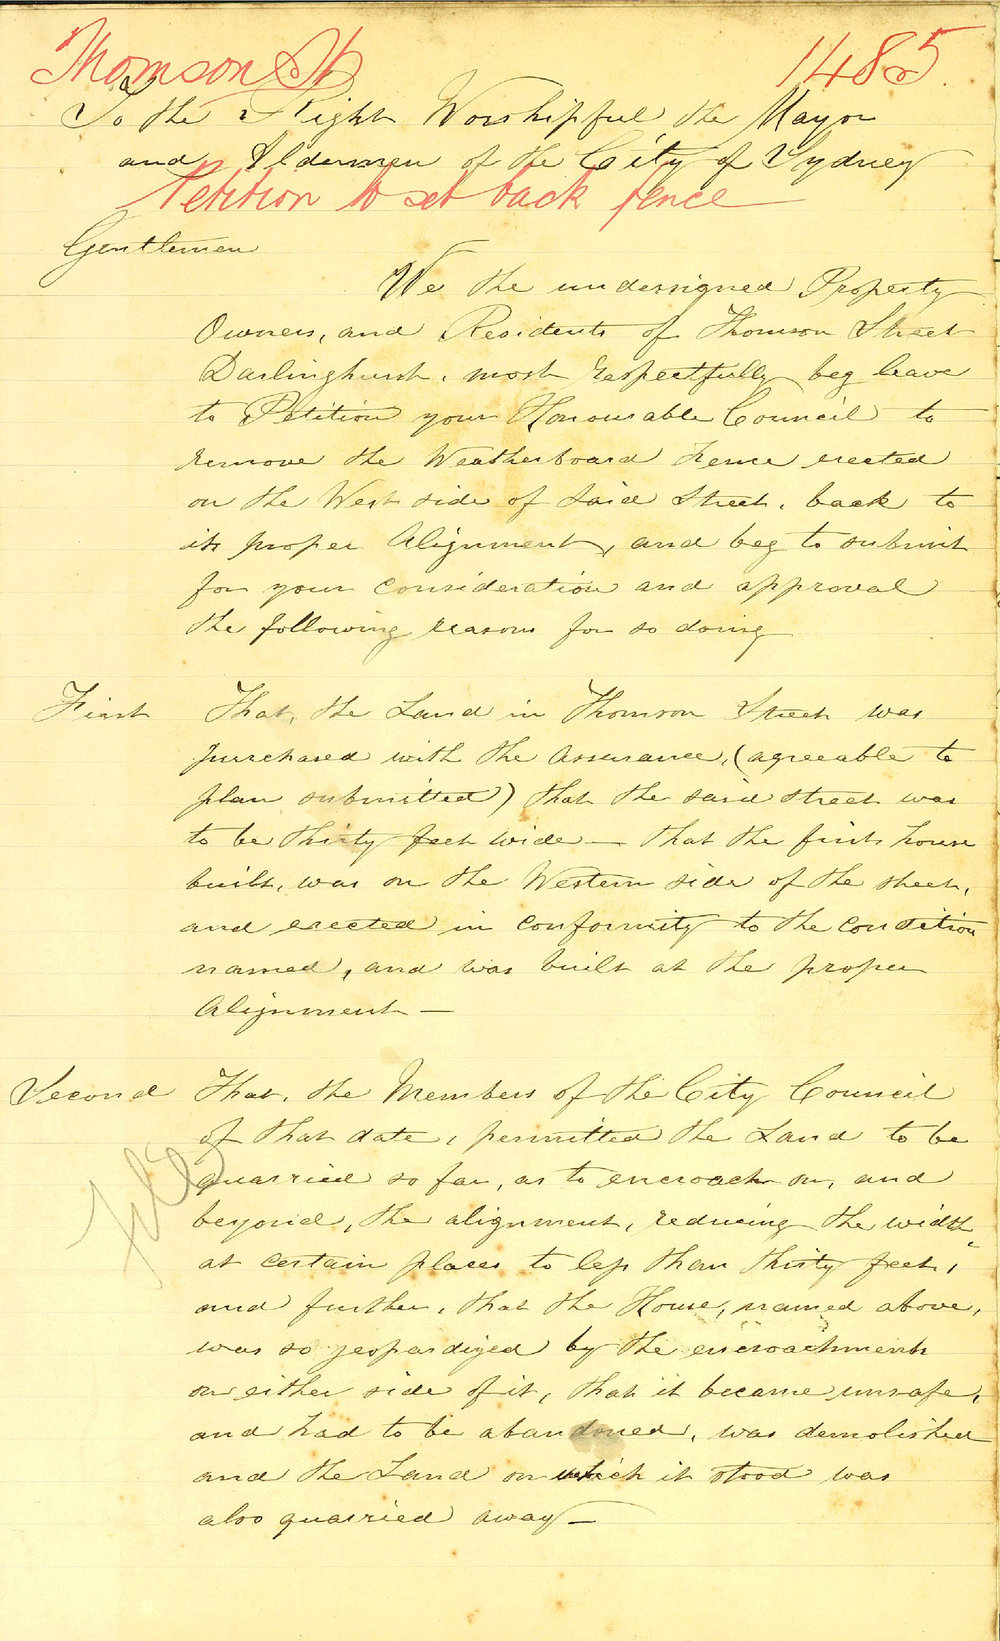 Thomson St 1485
To the Right Worshipful the Mayor
and Aldermen of the City of Sydney
Petition to set back fence
Gentlemen
We the undersigned Property
Owners, and Residents of Thomson Street
Darlinghurst, most respectfully beg leave
to Petition your Honourable Council to
remove the Weatherboard Fence erected
on the West side of said Street, back to
its proper Alignment, and beg to submit
for your consideration and approval
the following reasons for so doing
First That, the Land in Thomson Street was
purchased with the assurance, (agreeable to
plan submitted) that the said street was
to be thirty feet wide — that the first house
built, was on the Western side of the street,
and erected in conformity to the condition
named, and was built at the proper
Alignment —
Second That, the Members of the City Council
of that date, permitted the Land to be
quarried so far, as to encroach on, and
beyond, the alignment, reducing the width,
at certain places to less than thirty feet,
and further, that the House, named above,
was so jeopardized by the encroachments
on either side of it, that it became unsafe,
and had to be abandoned, was demolished
and the Land on which it stood was
also quarried away —